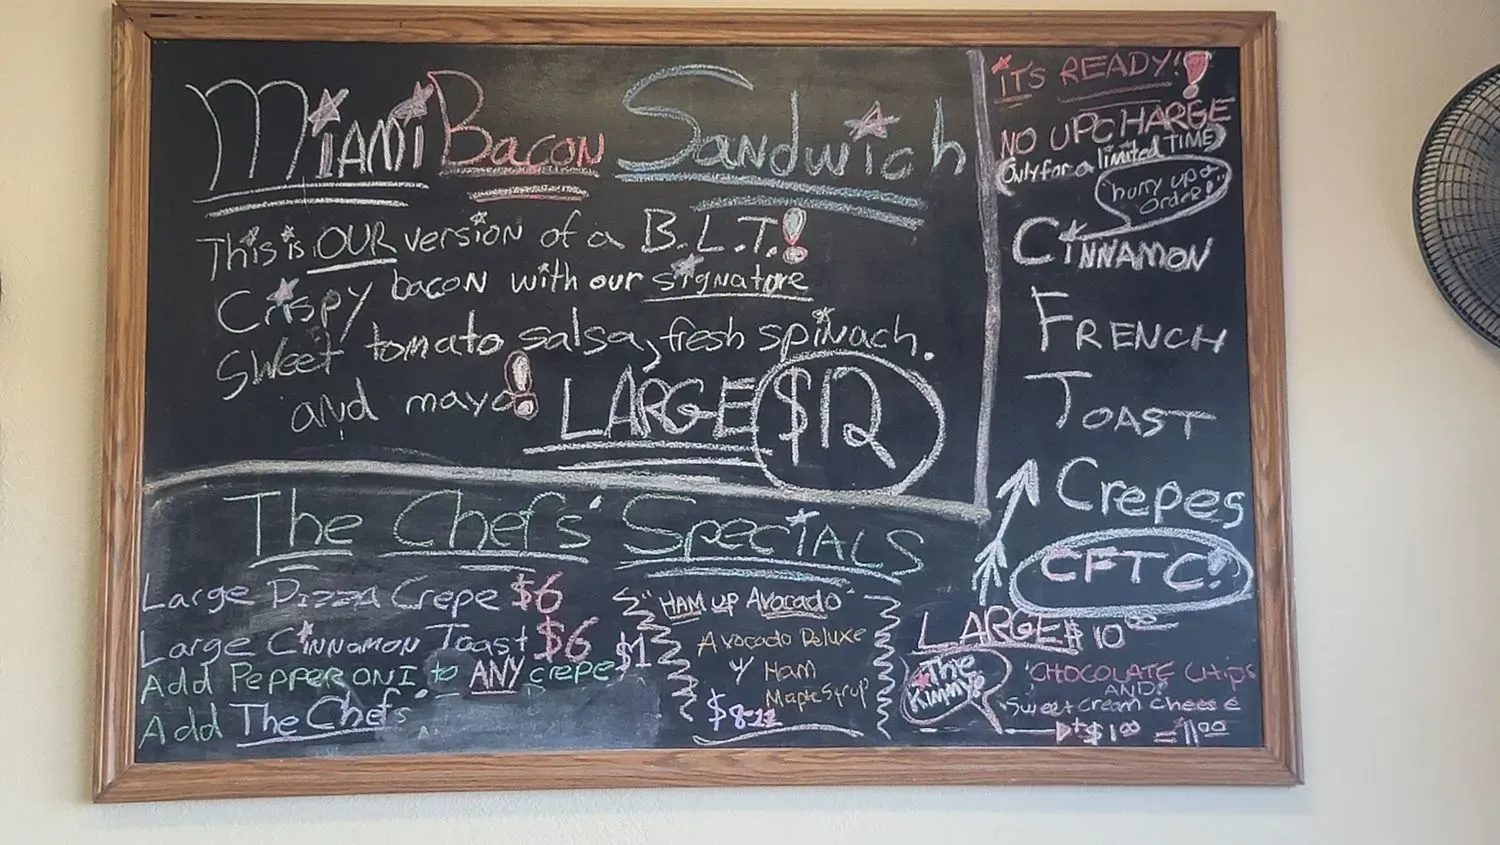 MiAMi BACON SANdwich
This is OUR version of a B.L.T.!
Crispy bacon with our signature
Sweet tomato salsa, fresh spinach.
and mayo! LARGE $12
The Chefs' Specials
Large Pizza Crepe $6
Large Cinnamon Toast $6
Add Pepperoni to ANY crepe $1
Add The Chefs'
"HAM UP Avocado"
Avocado Deluxe
w/ Ham
Maple Syrup
$8-11
IT'S READY!!
NO UPCHARGE
(Only for a limited TIME)
"hurry up &
Order!"
CINNAMON
FRENCH
TOAST
Crepes
CFTC!
LARGE $10
*The
Kimmy!
CHOCOLATE Chips
AND
Sweet Cream Cheese
+$1.00 = 11.00